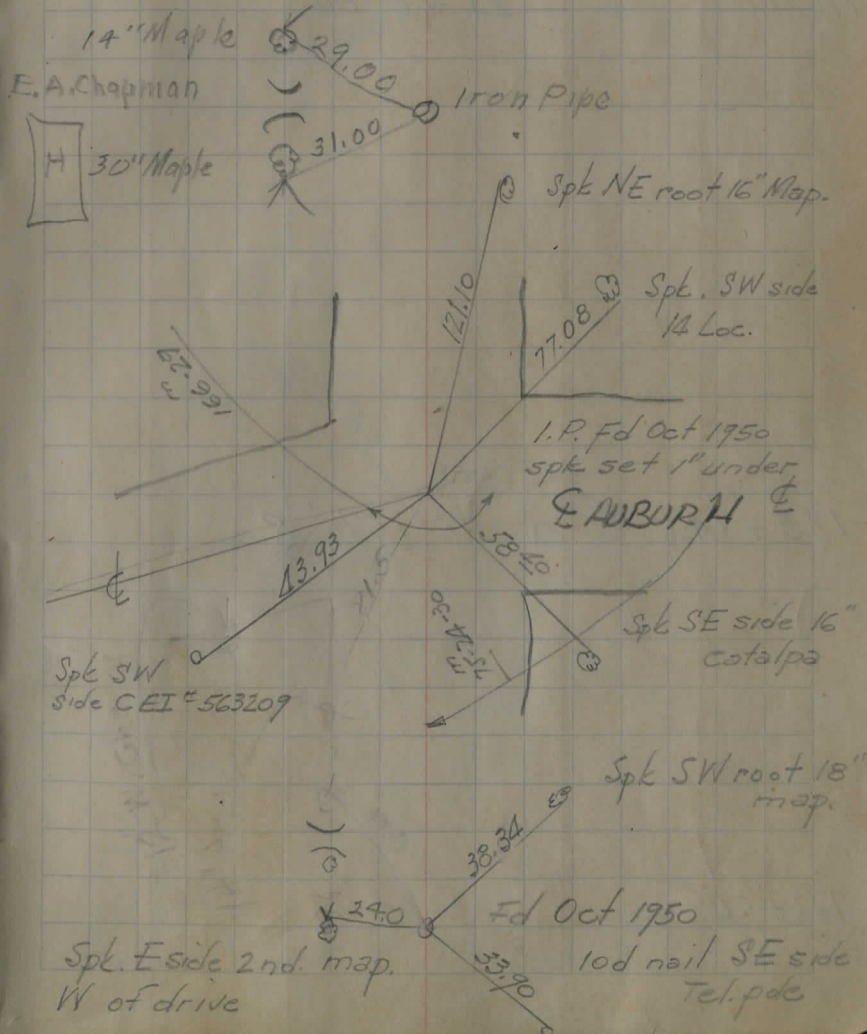 14" Maple
29.00
E.A. Chapman
Iron Pipe
31.00
H
30" Maple
Spk NE root 16" Map.
121.10
Spk. SW side
14 Loc.
77.08
166-29
I.P. Fd Oct 1950
spk set 1" under
℄ AUBURN ℄
58.40
43.93
71.5
℄
75-24-30
Spk SE side 16"
catalpa
Spk SW
side CEI #563209
Spk SW root 18"
map.
38.34
24.0
Fd Oct 1950
Spk. E side 2nd. map.
W of drive
33.90
10d nail SE side
Tel. pole